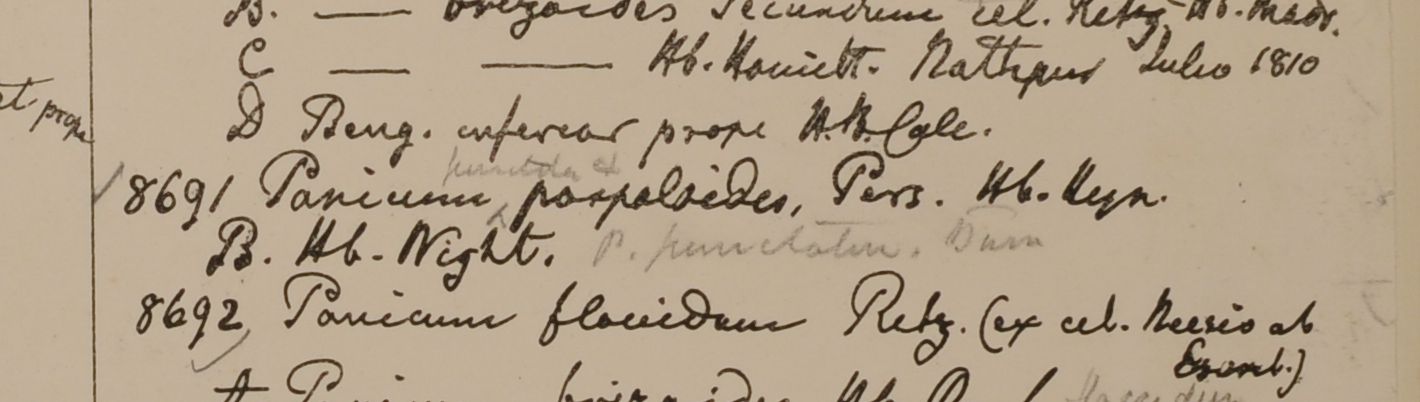 B. — oryzoides Secundum cel. Retz. Hb. Madr.
C — — Hb. Hamilt. Nathpur Julio 1810
et prope
D Beng. inferior prope H.B. Calc.
punctatum &
8691 Panicum paspaloides, Pers. Hb. Heyn.
B. Hb. Wight. P. punctatum. Burm
8692 Panicum flaccidum Retz. (ex cel. Neesio ab
Esenb.)
A Panicum brizoides Hb. flaccidum